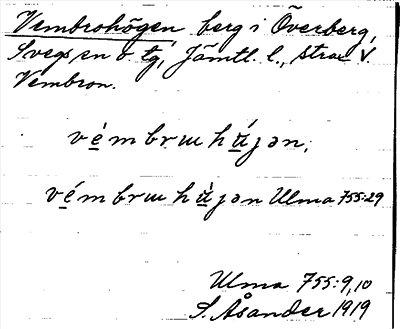 Vembrohögen berg i Överberg,
Svegs sn o. tg, Jämtl. l., strax V.
Vembron.
vèmbrɯhʉ́jən,
vémbrɯhʉ̀jən Ulma 755:29
Ulma 755:9,10
S. Åsander 1919